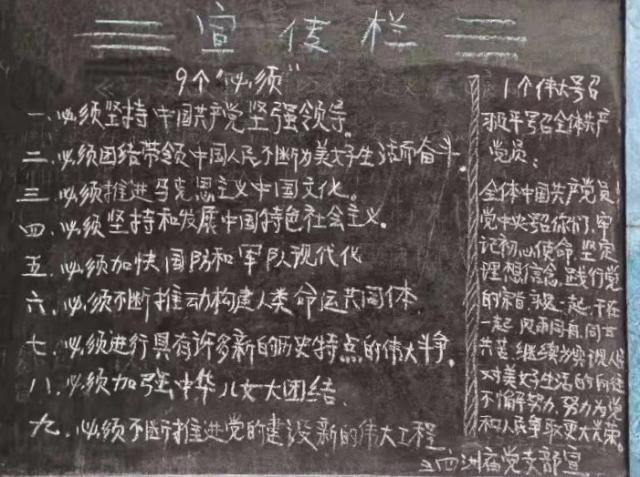 宣传栏
9个“必须”
一、必须坚持中国共产党坚强领导。
二、必须团结带领中国人民不断为美好生活而奋斗。
三、必须推进马克思主义中国文化。
四、必须坚持和发展中国特色社会主义。
五、必须加快国防和军队现代化
六、必须不断推动构建人类命运共同体
七、必须进行具有许多新的历史特点的伟大斗争。
八、必须加强中华儿女大团结.
九、必须不断推进党的建设新的伟大工程
1个伟大号召
习近平号召全体共产
党员:
全体中国共产党员!
党中央号召你们,牢
记初心使命,坚定
理想信念,践行党
的宗旨,
一起,风雨同舟,同甘
共苦,继续为实现人民
对美好生活的向往
不懈努力,努力为党
和人民争取更大光荣。
党支部宣